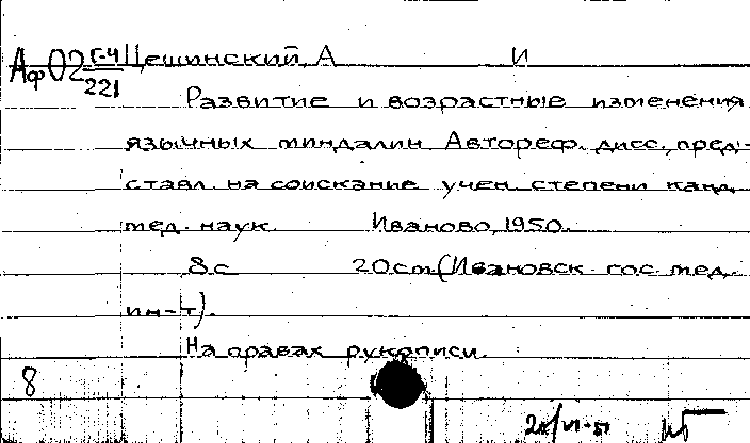 Аф02 Г-4/221 Цешинский, А И
Развитие и возрастные изменения
язычных миндалин. Автореф. дисс., пред-
ставл. на соискание учен. степени канд.
мед. наук. Иваново, 1950.
8с 20см (Ивановск. гос. мед.
ин-т).
На правах рукописи.
8